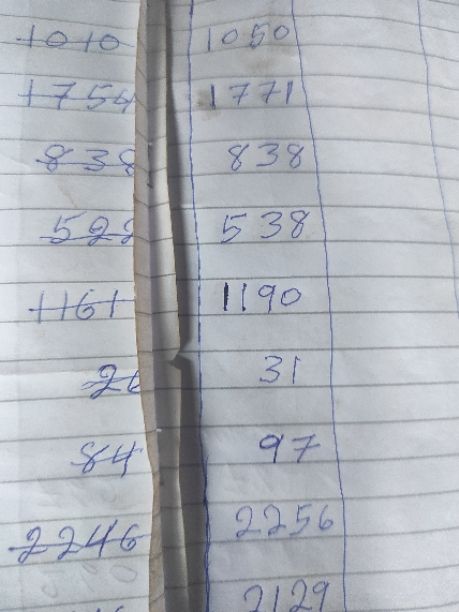 1010 1050
1754 1771
838 838
522 538
1161 1190
1 31
84 97
2246 2256
2129